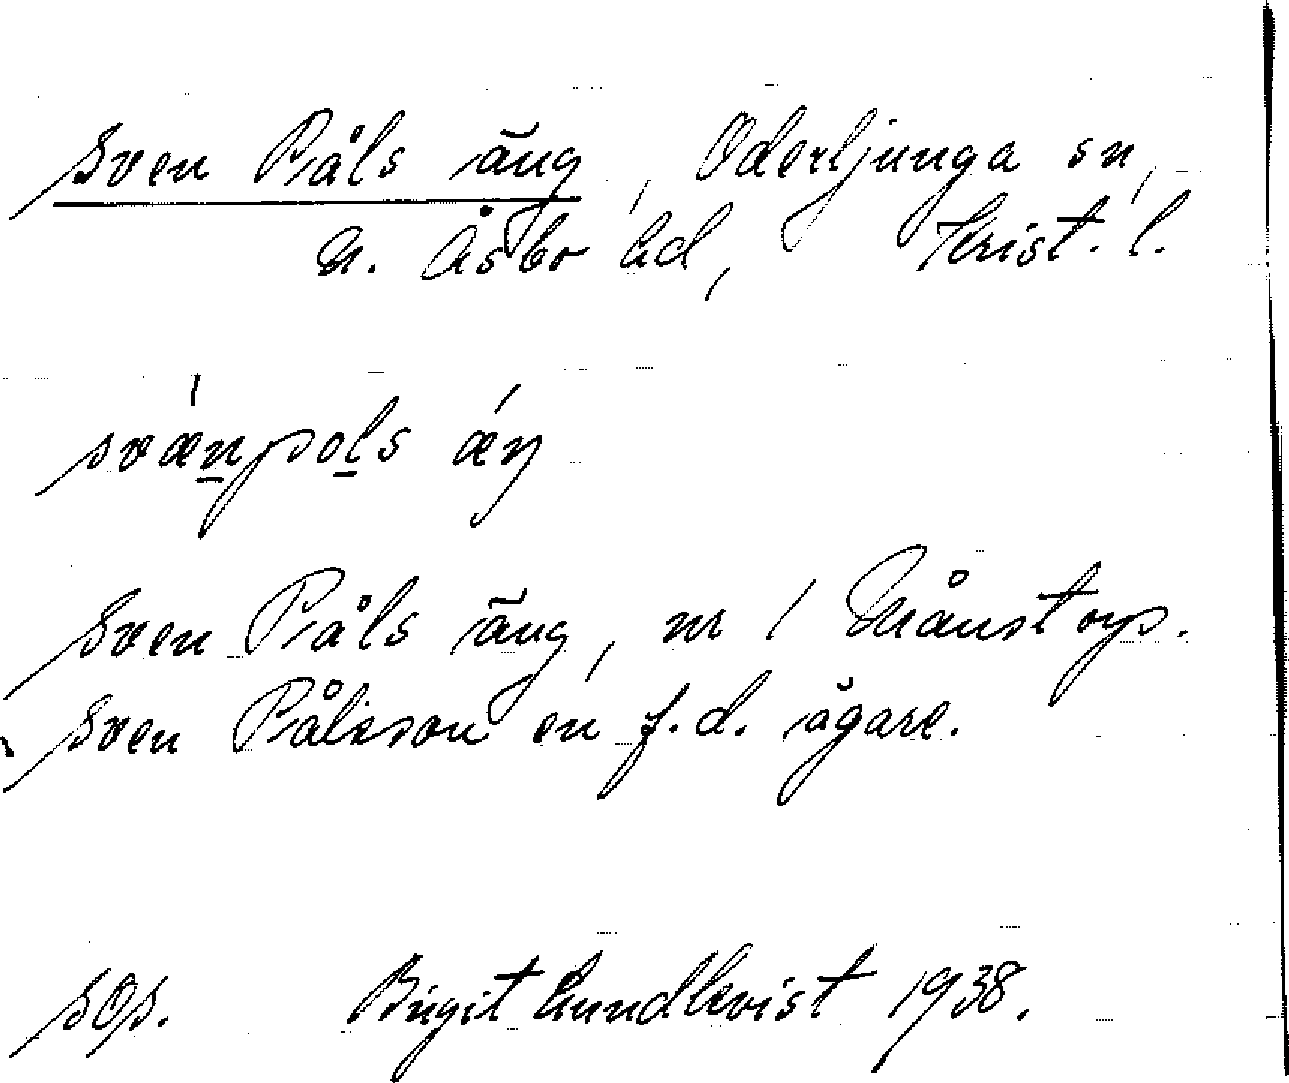 Sven Påls äng, Oderljunga sn,
N. Åsbo hd, Krist. l.
svænpols æŋ
Sven Påls äng, nr 1 Månstorp.
Sven Pålsson en f.d. ägare.
sOs. Birgit Lundkvist 1938.